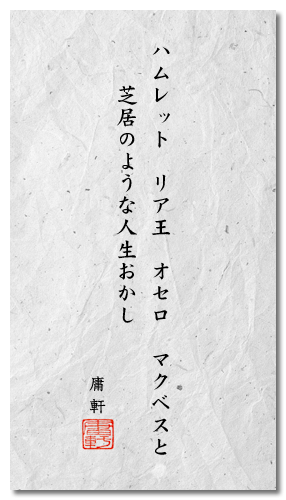 ハムレット　リア王　オセロ　マクベスと
芝居のような人生おかし
庸軒
庸軒